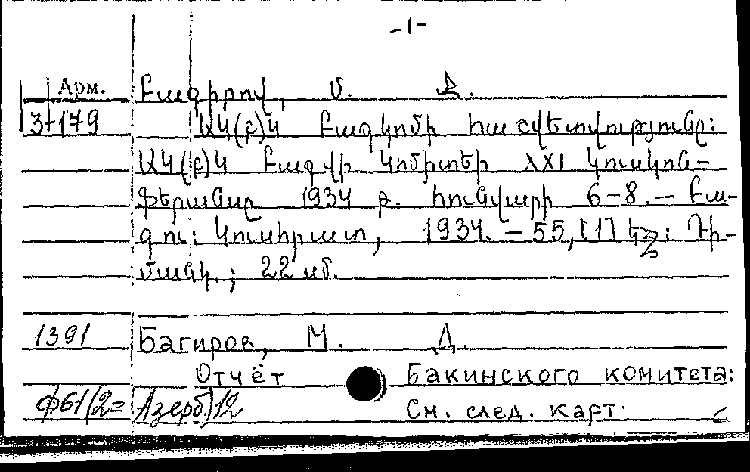 -1-
Арм. Բագիրով, Մ. Ջ.
3+179 ԱԿ(բ)Կ Բագկոմի հաշվետվությունը:
ԱԿ(բ)Կ Բագվի Կոմիտեի XXI կուսկոն-
ֆերանսը 1934 թ. հունվարի 6-8. – Բա-
գու: Կուսհրատ, 1934. – 55, [1] էջ: Դի-
մակ.; 22 սմ.
1391 Багиров, М. Д.
Отчёт Бакинского комитета:
Ф61(2=Азерб)12 См. след. карт.